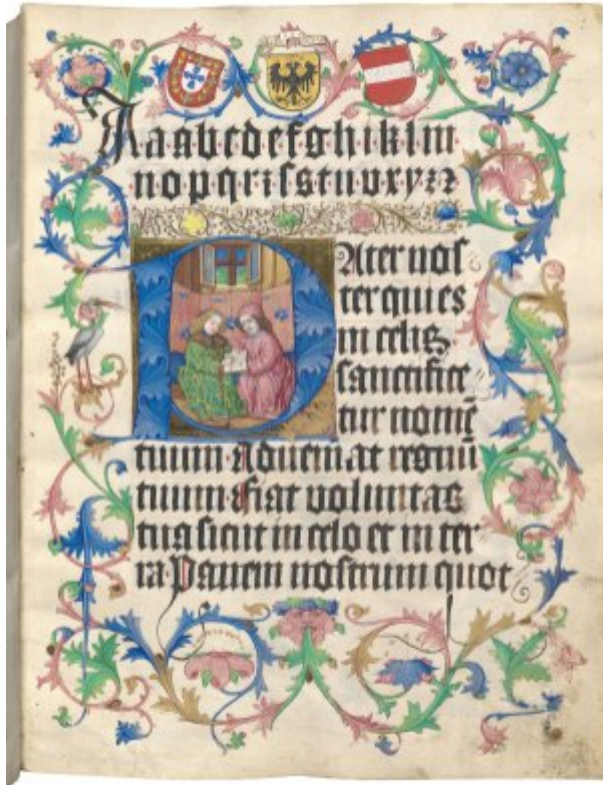 A a a b c d e f g h i k l m
n o p q r i ſ s t u v x y z z
Pater noſ
ter qui es
in celis
ſanctifice
tur nomē
tuum Adueniat regnū
tuum fiat voluntas
tua ſicut in celo et in ter
ra Panem noſtrum quot